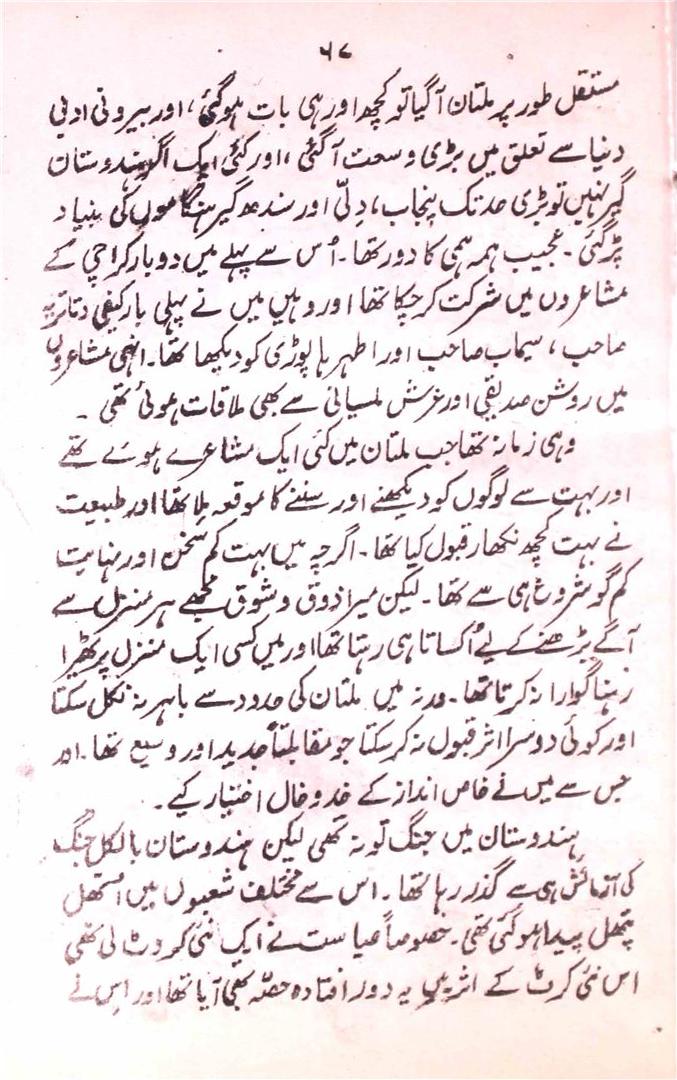 ۶۷
مستقل طور پر ملتان آگیا تو کچھ اور ہی بات ہوگئی، اور بیرونی ادبی
دنیا سے تعلق میں بڑی وسعت آگئی، اور کئی ایک اگر ہندوستان
گیر نہیں تو بڑی حد تک پنجاب، دلّی اور سندھ گیر ہنگاموں کی بنیاد
پڑگئی۔ عجیب ہمہ ہمی کا دور تھا۔ اُس سے پہلے میں دوبار کراچی کے
مشاعروں میں شرکت کرچکا تھا اور وہیں میں نے پہلی بار کیفی دتاتریہ
صاحب، سیماب صاحب اور اطہر ہاپوڑی کو دیکھا تھا۔ انہی مشاعروں
میں روشن صدیقی اور عرش ملسیانی سے بھی ملاقات ہوئی تھی ۔
وہی زمانہ تھا جب ملتان میں کئی ایک مشاعرے ہوئے تھے
اور بہت سے لوگوں کو دیکھنے اور سننے کا موقعہ ملا تھا اور طبیعت
نے بہت کچھ نکھار قبول کیا تھا۔ اگرچہ میں بہت کم سخن اور نہایت
کم گو شروع ہی سے تھا۔ لیکن میرا ذوق و شوق مجھے ہر منزل سے
آگے بڑھنے کے لیے اُکساتا ہی رہتا تھا اور میں کسی ایک منزل پر کھڑا
رہنا گوارا نہ کرتا تھا۔ ورنہ میں ملتان کی حدود سے باہر نہ نکل سکتا
اور کوئی دوسرا اثر قبول نہ کرسکتا جو مقابلتاً جدید اور وسیع تھا۔ اور
جس سے میں نے خاص انداز کے خدوخال اختیار کیے ۔
ہندوستان میں جنگ تو نہ تھی لیکن ہندوستان بالکل جنگ
کی آزمائش ہی سے گذر رہا تھا۔ اس سے مختلف شعبوں میں اتھل
پتھل پیدا ہوگئی تھی۔ خصوصاً سیاست نے ایک نئی کروٹ لی تھی
اس نئی کروٹ کے اثر میں یہ دور افتادہ حصّہ بھی آیا تھا اور اس نے